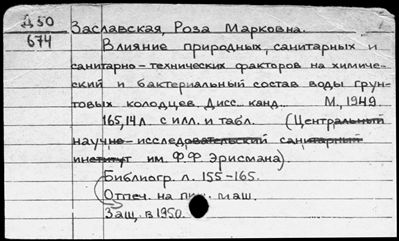 Д 50
674
Заславская, Роза Марковна.
Влияние природных, санитарных и
санитарно-технических факторов на химиче-
ский и бактериальный состав воды грун-
товых колодцев. Дисс. канд. М., 1949.
165,14 л. с илл. и табл. (Центральный
научно-исследовательский санитарный
институт им. Ф.Ф. Эрисмана).
Библиогр. л. 155-165.
Отпеч. на пиш. маш.
Защ. в 1950.